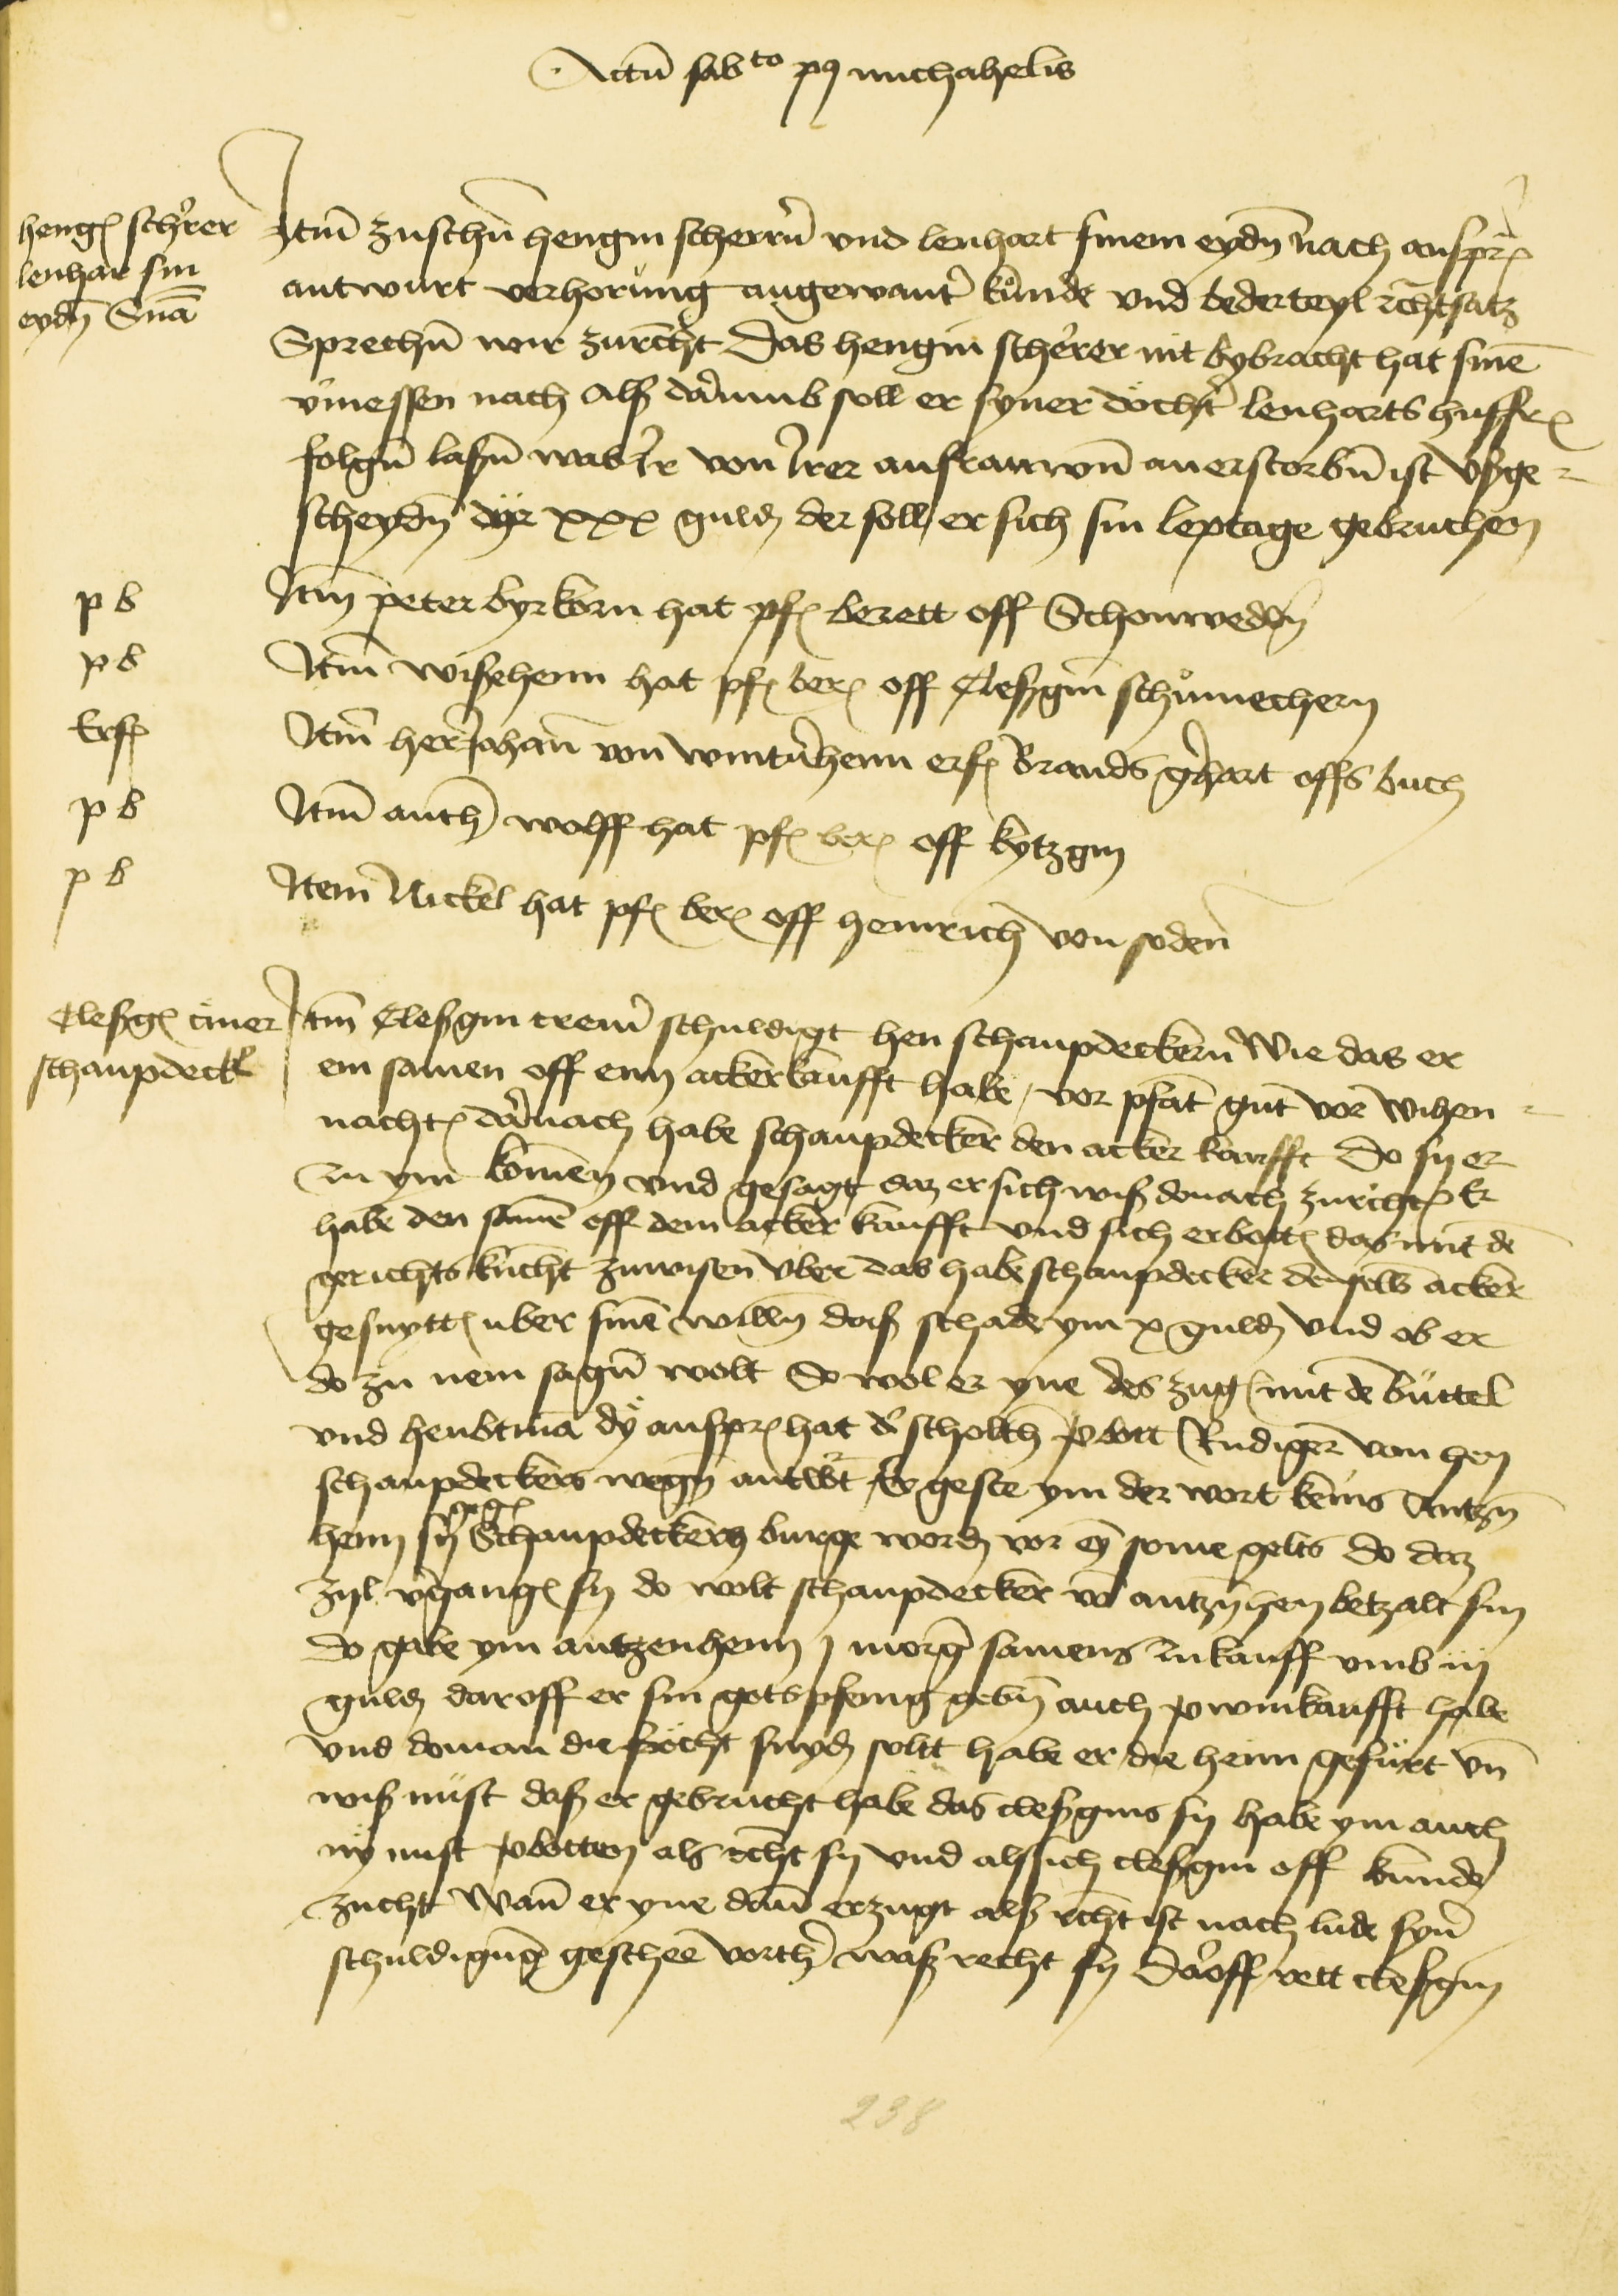 Actū sabto p9 michahelis
hengꝭ scherer
lenhar sin
eydn̄ Sn̄ia
Itm̄ zuschn̄ hengin scherrn̄ vnd lenhart sinem eydn̄ nach anspꝛꝭ
antwurt verhorung angewant' kunde vnd bederteyl rechtsatz
Sprechn̄ wir zurecht das hengin scherer nit bybracht hat sinē
v'messen nach Alß dar'umb soll er syner docht' lenharts hussfꝛꝭ
folgn̄ laßn̄ was Ir von Irer anfrauwn̄ anerstorbn̄ ist vßge-
scheydn̄ dyr xxx guldꝭ der soll er sich sin leptage gebruchen
p b
Itm̄ peter byrkorn hat pfꝭ berett off Schonwedd'n̄
p b
Itm̄ wißehenn hat pfꝭ berꝭ off Cleßgin schumechern
Erfꝭ
Itm̄ her Johan̄ von wintn̄heim erfꝭ Brands g'hart offs buch
p b
Itm̄ anth' wolff hat pfꝭ berꝭ off kytzgin
p b
Item Nickel hat pfꝭ berꝭ off heinrich von soden
Cleßgꝭ c'mer
schaupdeck'
Itm̄ Cleßgin cremer schuldigt hen schaupdeckern Wie das er
ein samen off eym acker kaufft habe, vor pfat gut vor wihen-
nachtꝭ dar'nach habe schaupdecker den acker kaufft do sy er
zu ym komen vnd gesagt daz er sich wiß donach zurichtꝭ Er
habe den samē off dem acker kaufft vnd sich erbottꝭ das mit dē
gerichts kn̄cht zuwisen vber das habe schaupdecker denselbn̄ acker
gesnyttꝭ vber sinē willn̄ daß schade ym x guldꝭ vnd ob er
do zu nein sagn̄ wolt So wol er yne des zugꝭ mit dē buttel
vnd heubtmā dy anspꝛꝭ hat d' scholth' v'bott Rudiger von hen
schaupdeckers wegn̄ antwt Er geste ym der wort keins Antzn̄
henn sy gegꝭ Schaupdeckern burge wordꝭ vor eȳ some gelts do daz
zyl v'gangꝭ sy do wolt schaupdecker vō antzn̄hen betzalt sin
do gabe ym antzenhenn j morg' samens zukauff vmb iij
guldꝭ daroff er sin gotspfenig gebn̄ auch v'winkaufft habe
vnd do man die frocht snydꝭ solt habe er die heim gefurt vn̄
wiß nust daß er gebrucht habe das cleßgins sy habe ym auch
ny nust v'botten als recht sy vnd als sich cleßgin off kunde
zucht Wan̄ er yne dan̄ erzugt alß recht ist nach lude syn'
schuldigung gescheē vorth' waß recht sy Dar'off rett cleßgin
238